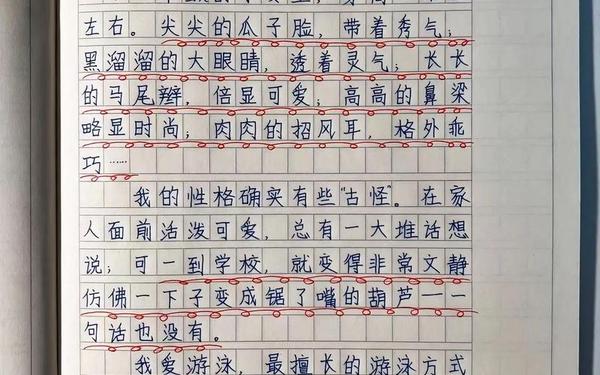 左右。尖尖的瓜子脸，带着秀气；
黑溜溜的大眼睛，透着灵气；长长
的马尾辫，倍显可爱；高高的鼻梁
略显时尚；肉肉的招风耳，格外乖
巧……
我的性格确实有些“古怪”。在家
人面前活泼可爱，总有一大堆话想
说；可一到学校，就变得非常文静
仿佛一下子变成锯了嘴的葫芦——一
句话也没有。
我爱游泳，最擅长的游泳方式